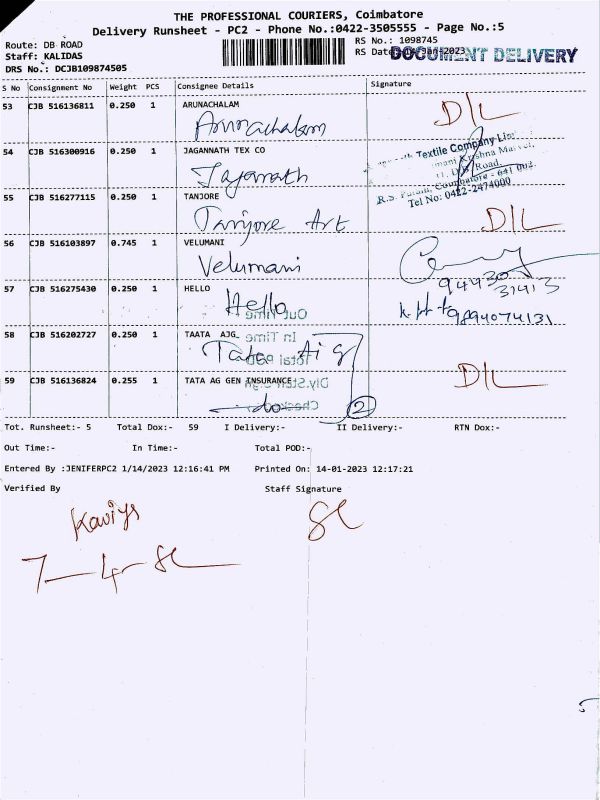 THE PROFESSIONAL COURIERS, Coimbatore
Delivery Runsheet - PC2 - Phone No.:0422-3505555 - Page No.:5
Route: DB ROAD
RS No.: 1098745
Staff: KALIDAS
RS Date: 14-Jan-2023
DOCUMENT DELIVERY
DRS No.: DCJB109874505
S No Consignment No Weight PCS Consignee Details Signature
53 CJB 516136811 0.250 1 ARUNACHALAM
Arunachalam
D/L
54 CJB 516300916 0.250 1 JAGANNATH TEX CO
Jaganath
Textile Company
Krishna
Road,
Coimbatore - 641 002.
Tel No: 0422-2474000
55 CJB 516277115 0.250 1 TANJORE
Tanjore Art
D/L
56 CJB 516103897 0.745 1 VELUMANI
Velumani
94430
31413
57 CJB 516275430 0.250 1 HELLO
Hello
9894074131
Out Time
58 CJB 516202727 0.250 1 TAATA AJG
In Time
Tata Aig
Total POD
59 CJB 516136824 0.255 1 TATA AG GEN INSURANCE
D/L
do
2
Tot. Runsheet:- 5 Total Dox:- 59 I Delivery:- II Delivery:- RTN Dox:-
Out Time:- In Time:- Total POD:-
Entered By :JENIFERPC2 1/14/2023 12:16:41 PM Printed On: 14-01-2023 12:17:21
Verified By Staff Signature
Kaviya
7-4-